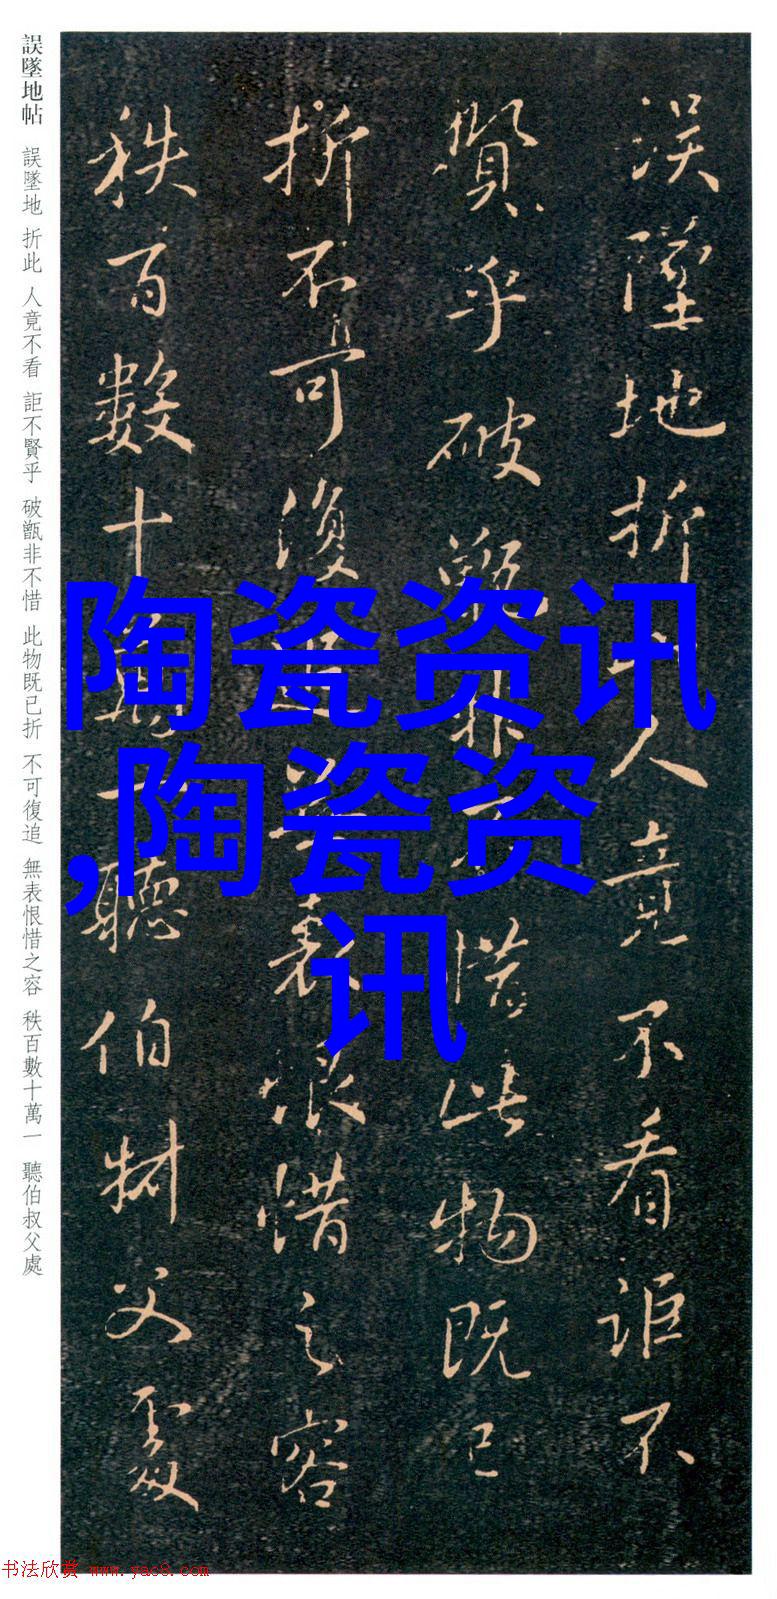 誤墜地折此人竟不看詎不
賢乎破甑非不惜此物既已
折不可復追無表恨惜之容
秩百數十萬一聽伯叔父處
誤墜地帖 誤墜地 折此 人竟不看 詎不賢乎 破甑非不惜 此物既已折 不可復追 無表恨惜之容 秩百數十萬一 聽伯叔父處
陶瓷资讯
,陶瓷资
讯
书法欣赏 www.yac8.com